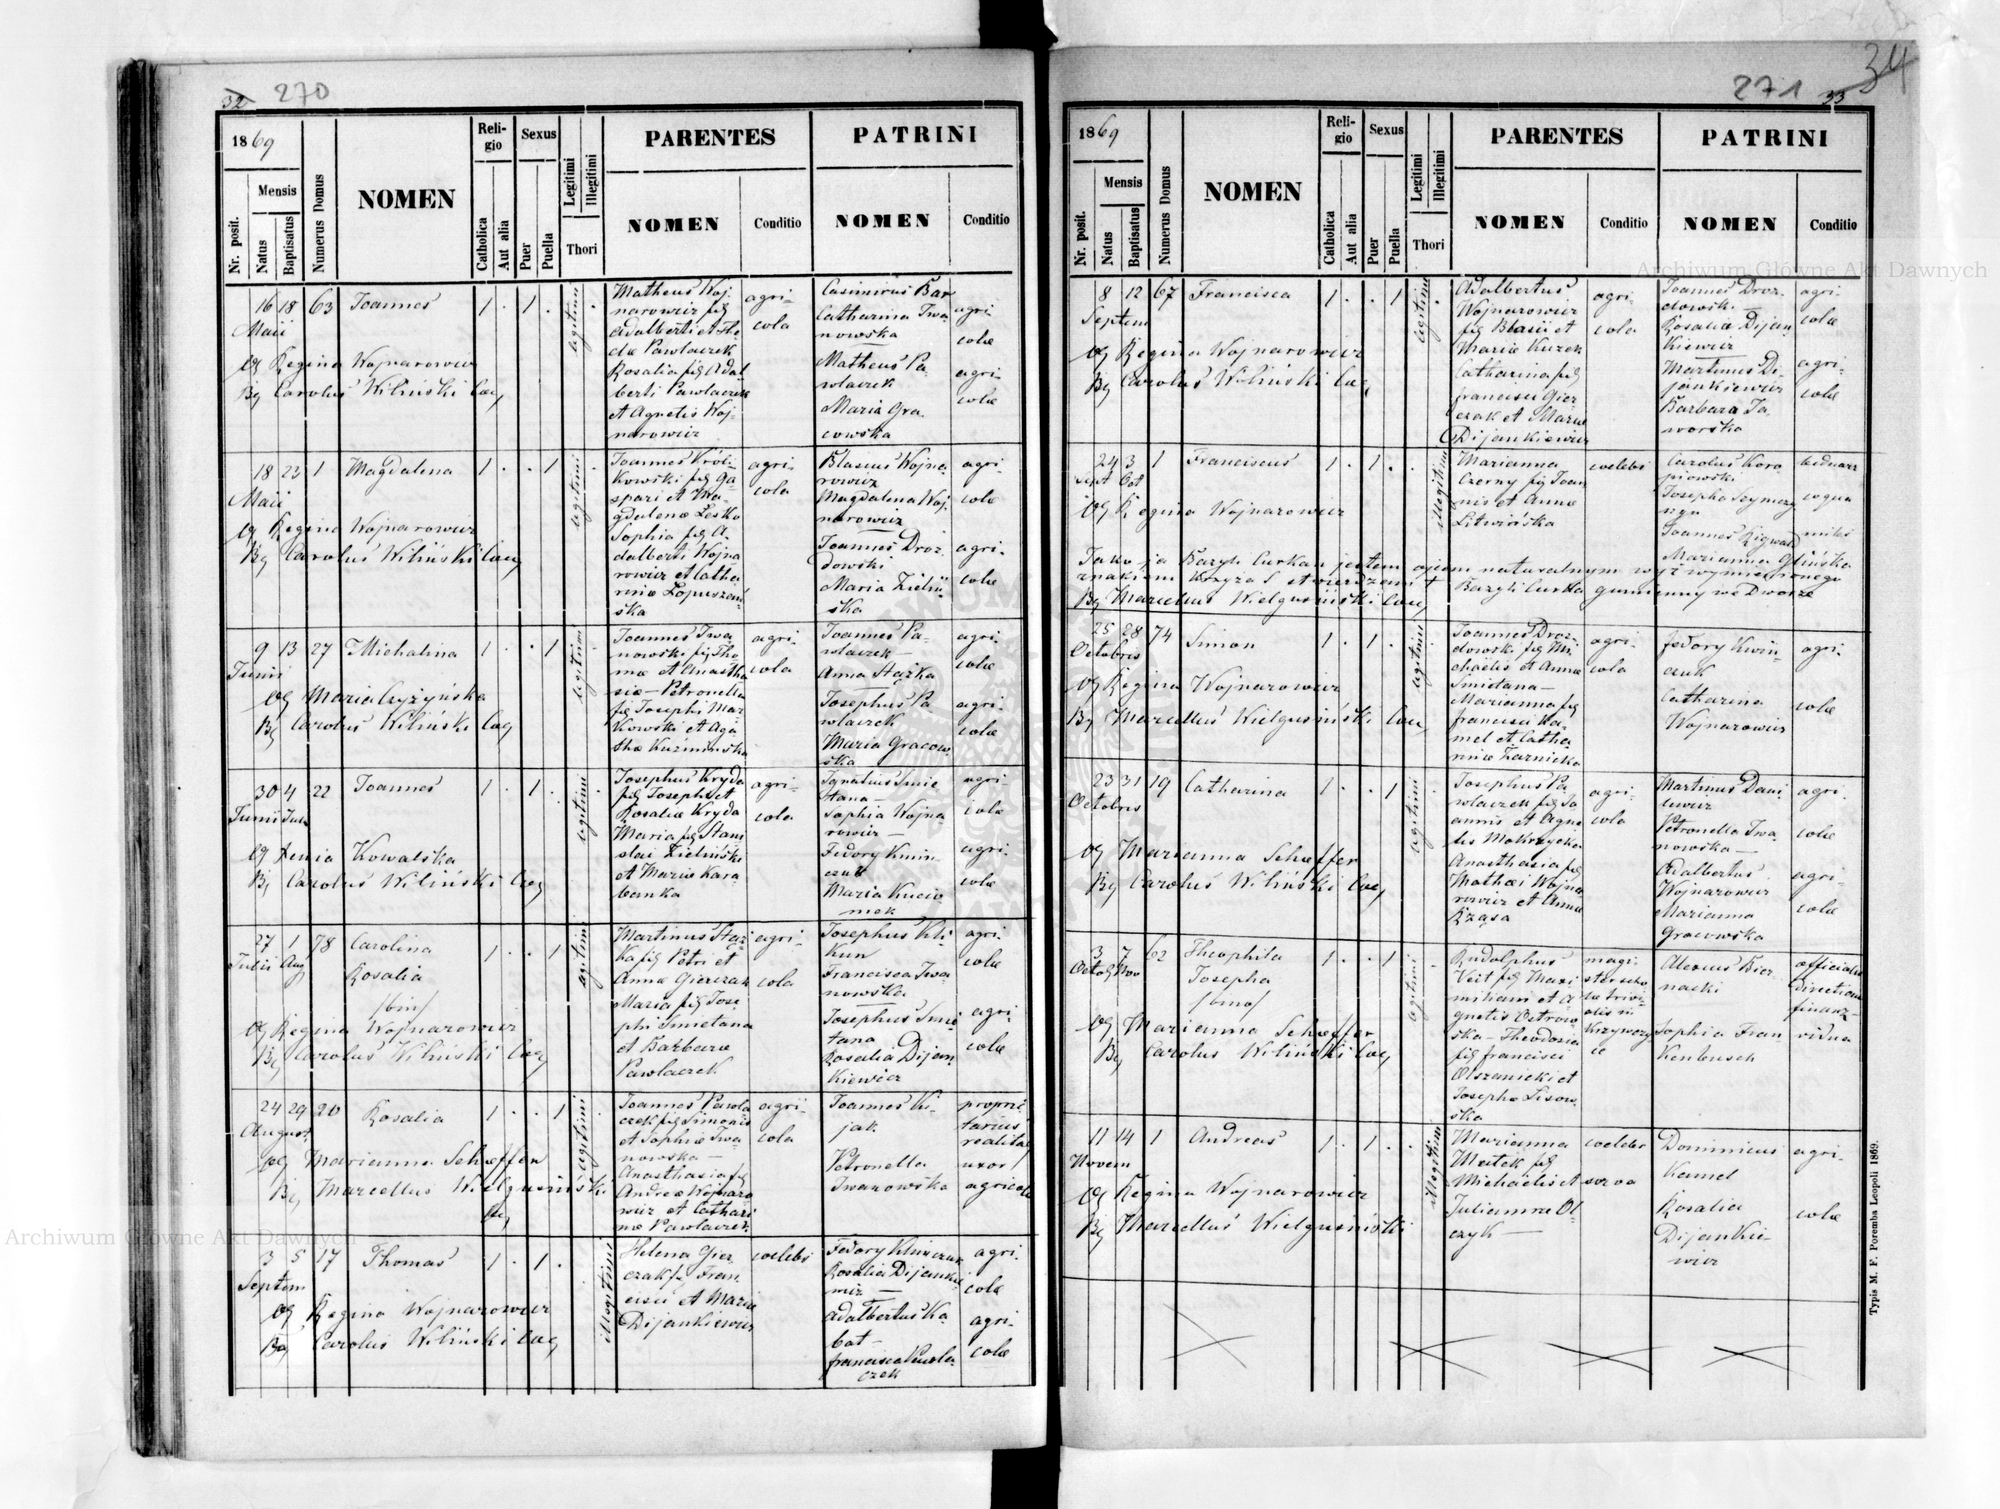 32 270
1869
Nr. posit.
Mensis
Natus
Baptisatus
Numerus Domus
NOMEN
Religio
Catholica
Aut alia
Sexus
Puer
Puella
Legitimi
Illegitimi
Thori
PARENTES
NOMEN
Conditio
PATRINI
NOMEN
Conditio
16 18 63 Joannes 1 . 1 .
Maii
Og Regina Wojnarowicz
Bg Carolus Wiliński Coop
legitimi
Matheus Woj
narowicz fig
Adalberti et
Pawlaczek
Rosalia fig Adal
berti Pawlaczek
et Agnetis Woj-
narowicz
agri-
cola
Casimirus Bar
Catharina Iwa
nowska
Matheus Pa
wlaczek
Maria Gra
cowska
agri
colæ
agri-
colæ
18 23 1 Magdalena 1 . . 1
Maii
Og Regina Wojnarowicz
Bg Carolus Wiliński Coop
legitimi
Joannes Króli-
kowski fig Ga
spari et Ma-
gdalenæ Lesko
Sophia fig A-
dalberti Wojna
rowicz et Catha
rinæ Łopuszań
ska
agri-
cola
Blasius Wojna
rowicz
Magdalena Woj
narowicz
Joannes Droz
dowski
Maria Zieliń
ska
agri-
colæ
agri-
colæ
9 13 27 Michalina 1 . . 1
Junii
Og Maria Czyżyńska
Bg Carolus Wiliński Coop
legitimi
Joannes Iwa
nowski fig Tho
mæ et Anastha
siæ — Petronella
fig Josephi Mar
kowski et Aga
thæ Kuzmińska
agri-
cola
Joannes Pa-
wlaczek —
Anna Stażka
Josephus Pa
wlaczek
Maria Gracow-
ska
agri-
colæ
agri-
colæ
30 4 22 Joannes 1 . 1 .
Junii Juli
Og Xenia Kowalska
Bg Carolus Wiliński Coop
legitimi
Josephus Kryda
fig Josephi et
Rosaliæ Kryda
Maria fig Stani
slai Zieliński
et Mariæ Kara
banka
agri-
cola
Ignatius Smie
tana —
Sophia Wojna-
rowicz —
Fedory Kmin-
czuk
Maria Kucie
mok
agri-
colæ
agri-
colæ
27 1 78 Carolina 1 . . 1
Julii Aug Rosalia
/bin/
Og Regina Wojnarowicz
Bg Carolus Wiliński Coop
legitimi
Martinus Staż
ka fig Petri et
Anna Gierczak
Maria fig Jose
phi Smietana
et Barbaræ
Pawlaczek
agri-
cola
Josephus Kli
kun
Francisca Iwa
nowska
Josephus Smie
tana
Rosalia Dijan
kiewicz
agri-
colæ
agri-
colæ
24 29 20 Rosalia 1 . . 1
August
Og Marianna Schæffer
Bg Marcellus Wielgusiński
Coop
legitimi
Joannes Pawla
czek fig Simonis
et Sophiæ Iwa
nowska —
Anasthasia fig
Andreæ Wojnaro
wicz et Cathari
næ Pawlaczek
agri-
cola
Joannes Ki-
jak
Petronella
Iwanowska
proprie
tarius
realitat
uxor
agricolæ
3 5 17 Thomas 1 . 1 .
Septem
Og Regina Wojnarowicz
Bg Carolus Wiliński Coop
illegitimi
Helena Gier
czak fig Fran
cisci et Mariæ
Dijankiewicz
coelebs
Fedory Kminczuk
Rosalia Dijankie
wicz —
Adalbertus Ka
bat —
Francisca Pawla
czek
agri-
colæ
agri-
colæ
271 33 34
1869
Nr. posit.
Mensis
Natus
Baptisatus
Numerus Domus
NOMEN
Religio
Catholica
Aut alia
Sexus
Puer
Puella
Legitimi
Illegitimi
Thori
PARENTES
NOMEN
Conditio
PATRINI
NOMEN
Conditio
8 12 67 Francisca 1 . . 1
Septem
Og Regina Wojnarowicz
Bg Carolus Wiliński Coop
legitimi
Adalbertus
Wojnarowicz
fig Blasii et
Mariæ Kuzek
Catharina fig
Francisci Gier
czak et Mariæ
Dijankiewicz
agri-
cola
Joannes Droz-
dowski
Rosalia Dijan
kiewicz
Martinus Di-
jankiewicz
Barbara Ja
worska
agri-
colæ
agri-
colæ
24 3 1 Franciscus 1 . 1 .
Sept Oct
Og Regina Wojnarowicz
illegitimi
Marianna
Czerny fig Joan
nis et Annæ
Litwińska
coelebs
Carolus Koro
piowski
Josepha Szymczy
Joannes
Marianna Glińska
Jako ja Bazyli Curkan jestem ojcem naturalnym wyż wymienionego
znakiem krzyża S. stwierdzam + Bazyli Curka gumienny we Dworze
Bg Marcellus Wielgusiński Coop
25 28 74 Simon 1 . 1 .
Octobris
Og Regina Wojnarowicz
Bg Marcellus Wielgusiński Coop
legitimi
Joannes Droz-
dowski fig Mi
chaelis et Annæ
Smietana —
Marianna fig
Francisci Ka
mel et Catha
rinæ Żarnicka
agri-
cola
Fedory Kmin-
czuk
Catharina
Wojnarowicz
agri-
colæ
23 31 19 Catharina 1 . . 1
Octobris
Og Marianna Schæffer
Bg Carolus Wiliński Coop
legitimi
Josephus Pa
wlaczek fig Jo
annis et Agne
tis Mokrzycka
Anasthasia fig
Mathæi Wojna
rowicz et Annæ
Rząsa
agri-
cola
Martinus Dani
lewicz
Petronella Iwa
nowska —
Adalbertus
Wojnarowicz
Marianna
Gracowska
agri-
colæ
agri-
colæ
3 7 62 Theophila 1 . . 1
Octob Nov Josepha
/bina/
Og Marianna Schæffer
Bg Carolus Wiliński Coop
legitimi
Rudolphus
Veit fig Maxi
miliani et A
gnetis Ostrow
ska — Theodosia
fig Francisci
Olszanicki et
Josepha Lisow-
ska
magi-
ster scho
læ trivi-
alis in
Krzywczy
ce
Alexius Bier
nacki
Sophia Fran
kenbusch
officialis
directionis
finanz —
vidua
11 14 1 Andreas 1 . 1 .
Novem
Og Regina Wojnarowicz
Bg Marcellus Wielgusiński
illegitimi
Marianna
Matek fig
Michaelis et
Juliannæ Ol
czyk —
coelebs
Dominicus
Kamel
Rosalia
Dijankie-
wicz
agri-
colæ
Typis M. F. Poremba Leopoli 1869.
Archiwum Główne Akt Dawnych
Archiwum Główne Akt Dawnych